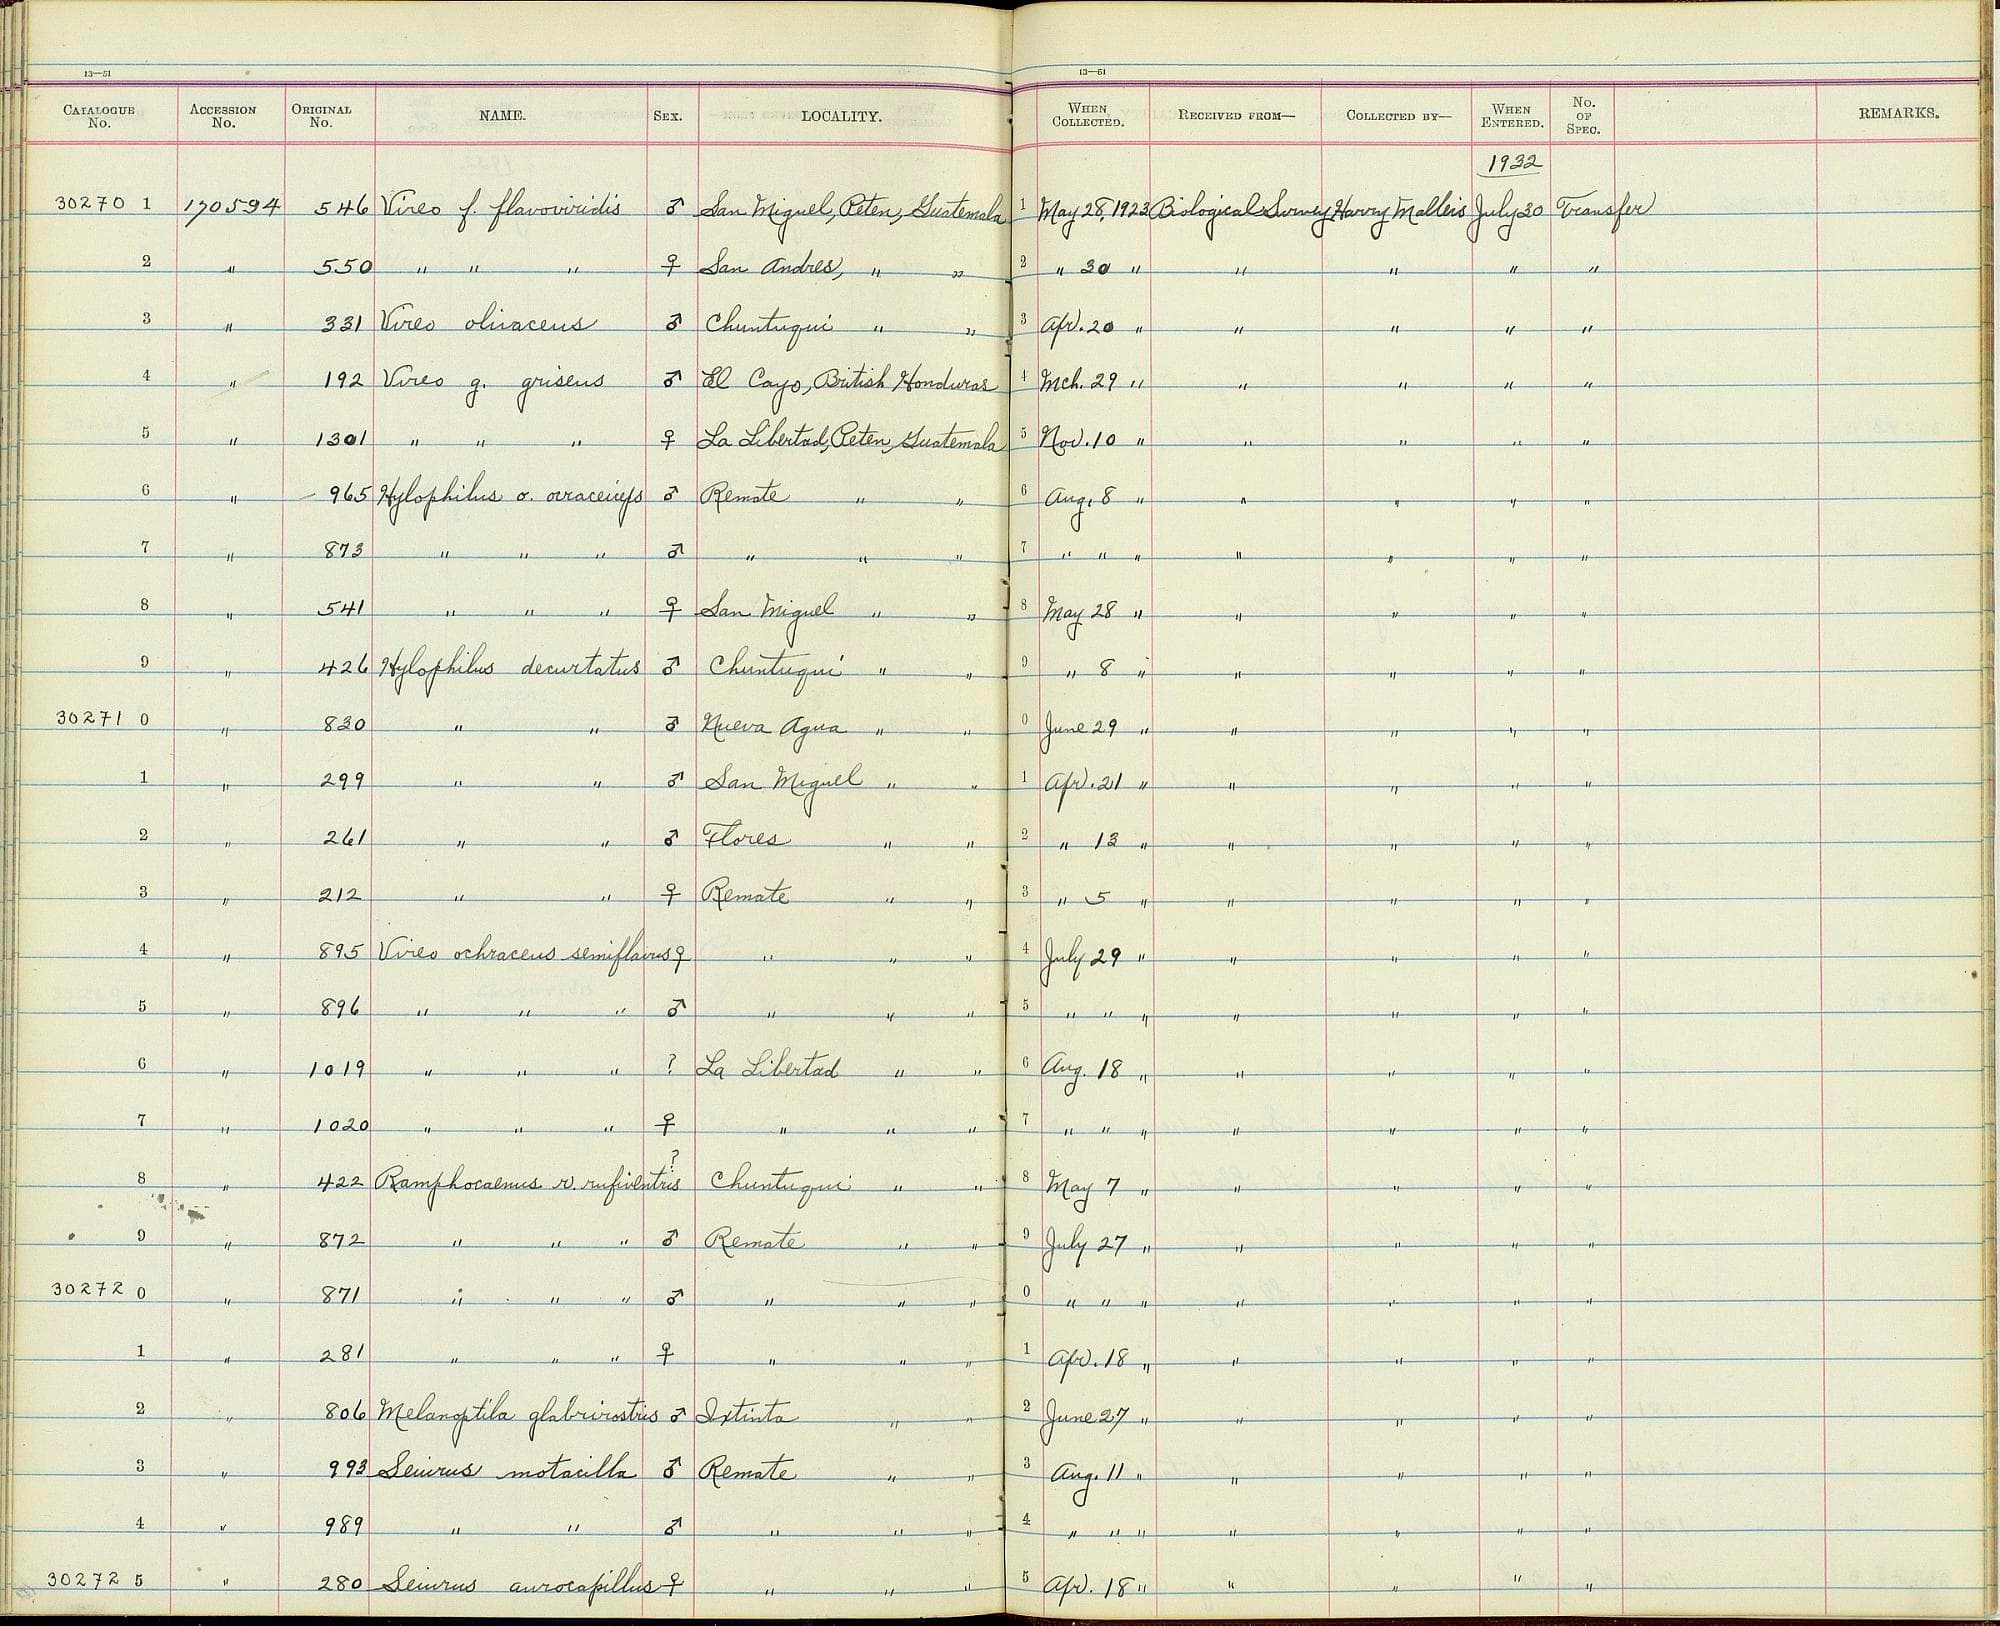 13—51 13—51
CATALOGUE No. ACCESSION No. ORIGINAL No. NAME. SEX. LOCALITY. WHEN COLLECTED. RECEIVED FROM— COLLECTED BY— WHEN ENTERED. No. OF SPEC. REMARKS.
1932
30270 1 170594 546 Vireo f. flavoviridis ♂ San Miguel, Peten, Guatemala 1 May 28, 1923 Biological Survey Harry Malleis July 30 Transfer
2 " 550 " " " ♀ San Andres, " " 2 " 30 " " " " "
3 " 331 Vireo olivaceus ♂ Chuntuqui " " 3 Apr. 20 " " " " "
4 " 192 Vireo g. griseus ♂ El Cayo, British Honduras 4 Mch. 29 " " " " "
5 " 1301 " " " ♀ La Libertad, Peten, Guatemala 5 Nov. 10 " " " " "
6 " 965 Hylophilus o. ♂ Remate " " 6 Aug. 8 " " " " "
7 " 873 " " " ♂ " " " 7 " " " " " " "
8 " 541 " " " ♀ San Miguel " " 8 May 28 " " " " "
9 " 426 Hylophilus decurtatus ♂ Chuntuqui " " 9 " 8 " " " " "
30271 0 " 830 " " ♂ Nueva Agua " " 0 June 29 " " " " "
1 " 299 " " ♂ San Miguel " " 1 Apr. 21 " " " " "
2 " 261 " " ♂ Flores " " 2 " 13 " " " " "
3 " 212 " " ♀ Remate " " 3 " 5 " " " " "
4 " 895 Vireo ochraceus semiflavus ♀ " " " 4 July 29 " " " " "
5 " 896 " " " ♂ " " " 5 " " " " " " "
6 " 1019 " " " ? La Libertad " " 6 Aug. 18 " " " " "
7 " 1020 " " " ♀ " " " 7 " " " " " " "
8 " 422 Ramphocaenus r. rufiventris ? Chuntuqui " " 8 May 7 " " " " "
9 " 872 " " " ♂ Remate " " 9 July 27 " " " " "
30272 0 " 871 " " " ♂ " " " 0 " " " " " " "
1 " 281 " " " ♀ " " " 1 Apr. 18 " " " " "
2 " 806 Melanoptila glabrirostris ♂ Ixtinta " " 2 June 27 " " " " "
3 " 993 Seiurus motacilla ♂ Remate " " 3 Aug. 11 " " " " "
4 " 989 " " ♂ " " " 4 " " " " " " "
30272 5 " 280 Seiurus aurocapillus ♀ " " " 5 Apr. 18 " " " " "